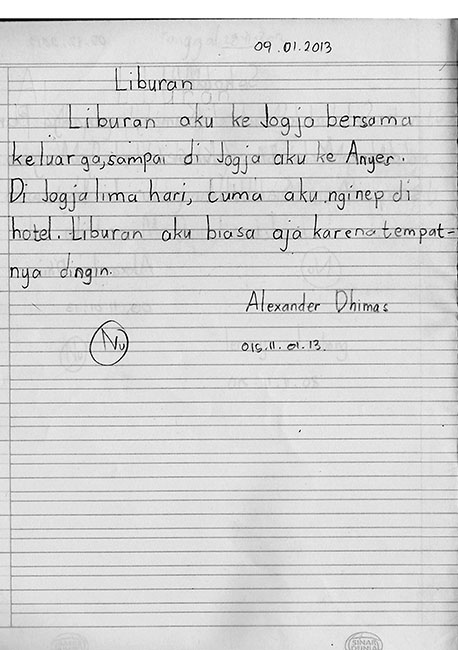 09.01.2013
Liburan
Liburan aku ke Jogja bersama
keluarga, sampai di Jogja aku ke Anyer.
Di Jogja lima hari, cuma aku nginep di
hotel. Liburan aku biasa aja karena tempat-
nya dingin.
Alexander Dhimas
Nu
015.11.01.13.
SINAR
DUNIA